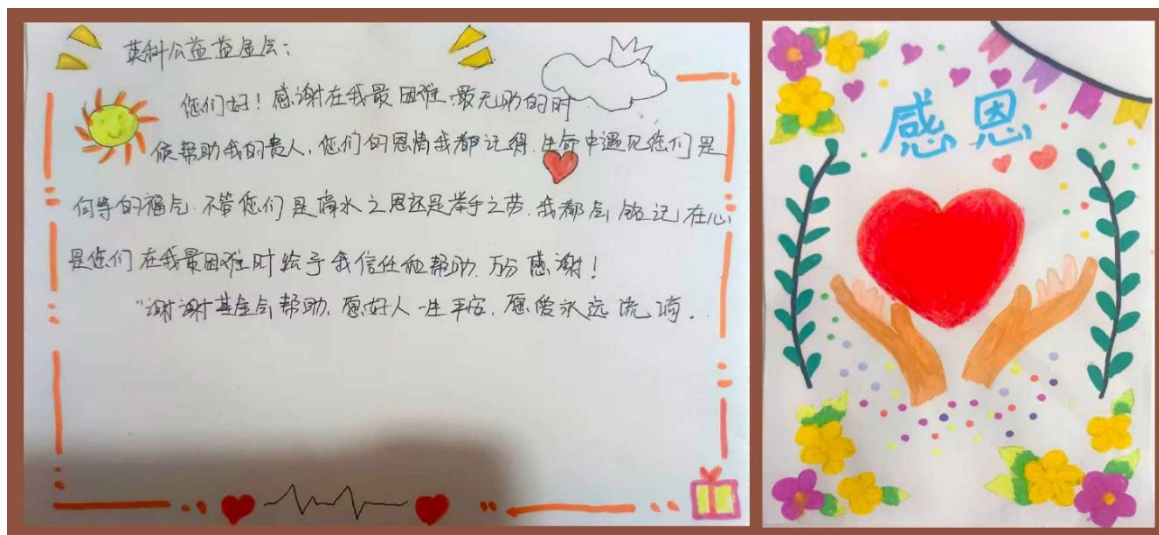 英科公益基金会：
您们好！感谢在我最困难.最无助的时
候帮助我的贵人,您们的恩情我都记得.生命中遇见您们是
何等的福气.不管您们是滴水之恩还是举手之劳.我都会铭记在心
是您们在我最困难时给予我信任和帮助.万分感谢！
"谢谢基金会帮助.愿好人一生平安.愿爱永远流淌..
感恩